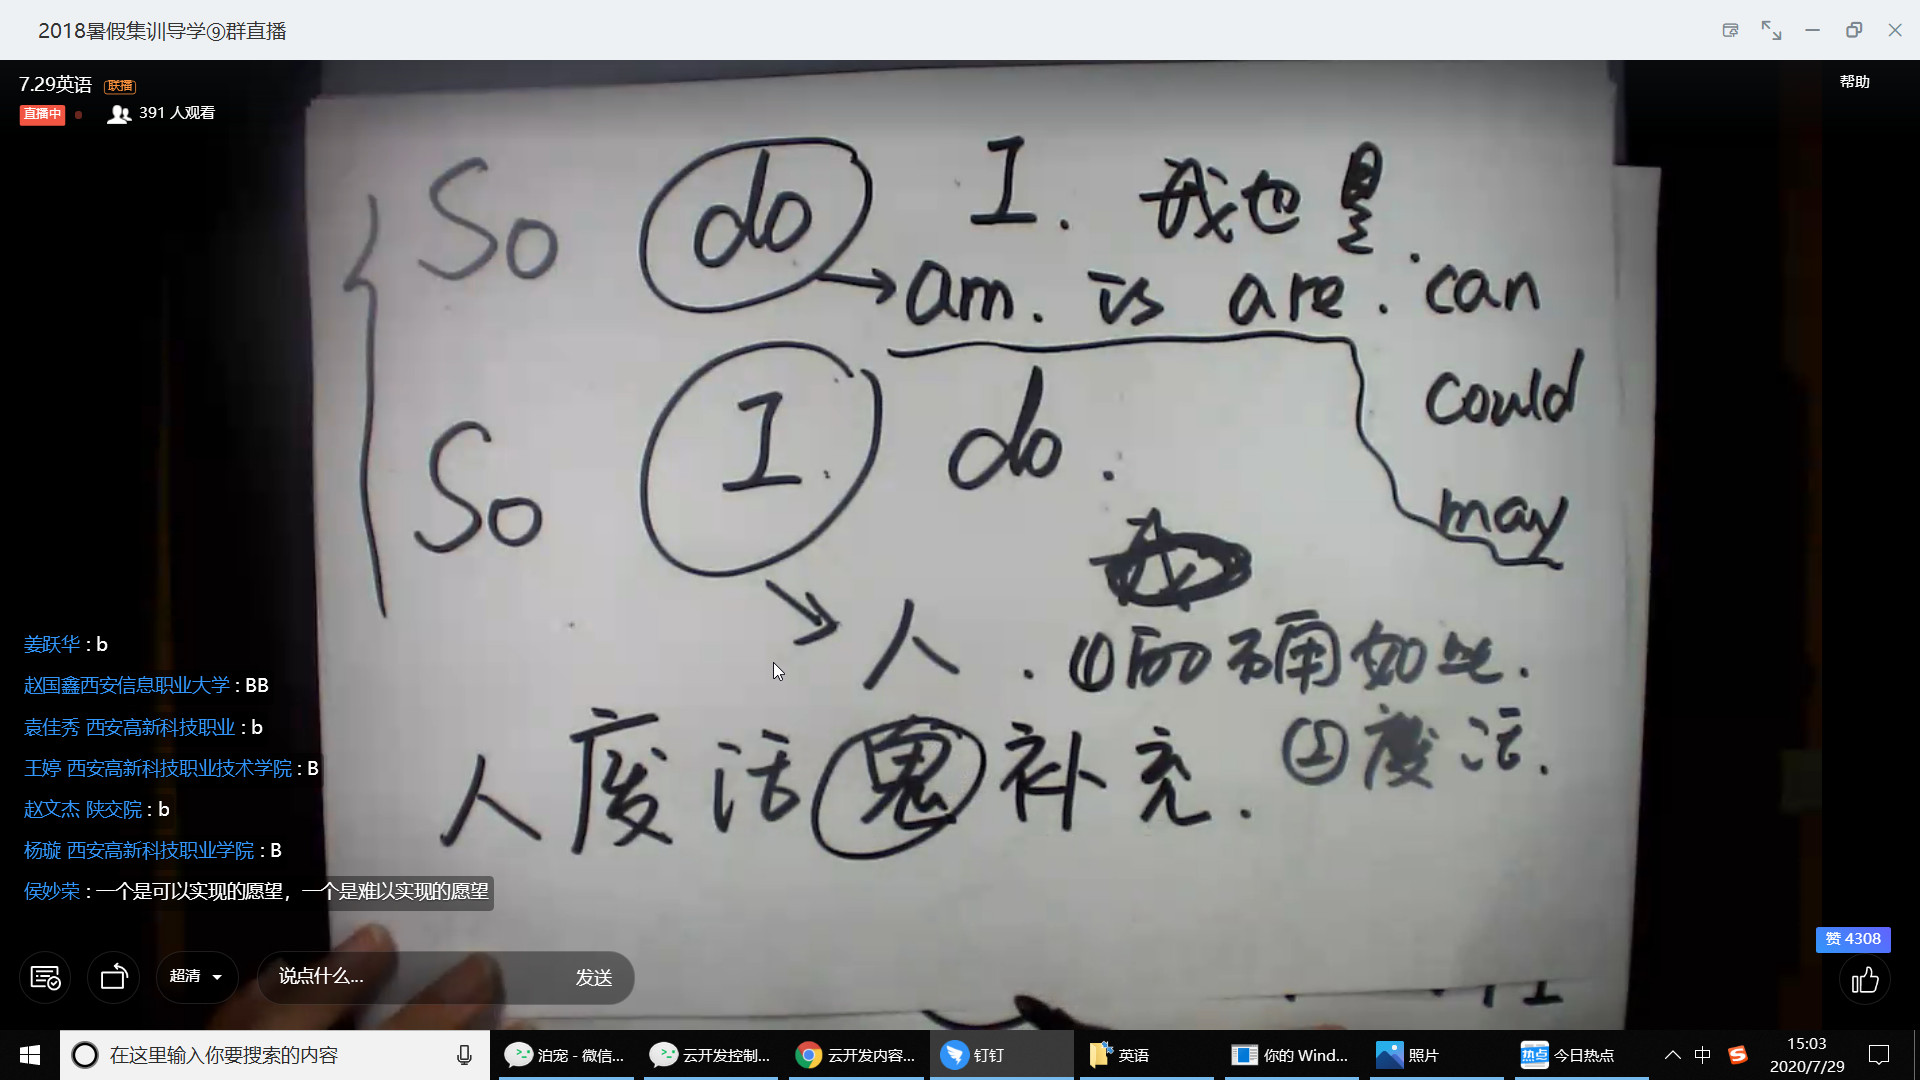 2018暑假集训导学⑨群直播
7.29英语 联播
直播中 391 人观看
帮助
So do I. 我也是.
am. is are. can
could
may
So I do.
人. ①的确如此.
②废话.
人废话鬼补充.
姜跃华 : b
赵国鑫西安信息职业大学 : BB
袁佳秀 西安高新科技职业 : b
王婷 西安高新科技职业技术学院 : B
赵文杰 陕交院 : b
杨璇 西安高新科技职业学院 : B
侯妙荣 : 一个是可以实现的愿望，一个是难以实现的愿望
赞 4308
超清 说点什么... 发送
在这里输入你要搜索的内容 泊宠 - 微信... 云开发控制... 云开发内容... 钉钉 英语 你的 Wind... 照片 热点 今日热点 中 15:03
2020/7/29